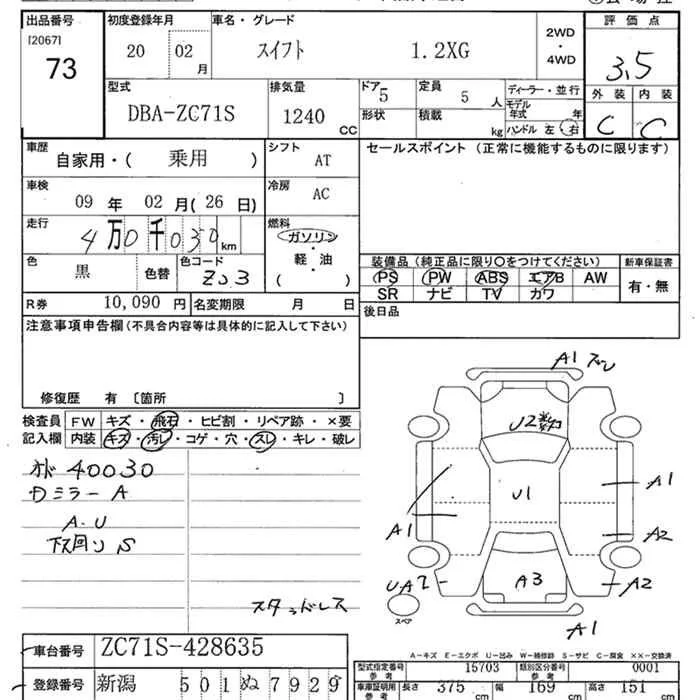 出品番号
[2067]
73
初度登録年月
20 02 月
車名・グレード
スイフト 1.2XG
2WD
・
4WD
評価点
3.5
型式
DBA-ZC71S
排気量
1240 CC
ドア 5
定員 5 人
ディーラー・並行
形状
積載 kg
モデル年式 年
ハンドル 左・右
外装 内装
C C
車歴
自家用・( 乗用 )
シフト
AT
セールスポイント (正常に機能するものに限ります)
車検
09 年 02 月 ( 26 日)
冷房
AC
走行
4万0千030 km
燃料
ガソリン
軽・油
・
( )
色
黒
色替
色コード
ZJ3
装備品 (純正品に限り○をつけてください)
新車保証書
PS PW ABS エアB AW
SR ナビ TV カワ
有・無
R券 10,090 円
名変期限 月 日
後日品
注意事項申告欄 (不具合内容等は具体的に記入して下さい)
修復歴 有 〔箇所 〕
検査員 FW キズ・飛石・ヒビ割・リペア跡・×要
記入欄 内装 キズ・汚レ・コゲ・穴・スレ・キレ・破レ
40030
ミラー A
A・U
下廻り S
スタッドレス
A1
U2
U1
A1
A1
A2
UA2
A3
A2
スペア
A1
A-キズ E-エクボ U-凹み W-補修跡 S-サビ C-腐食 ××-交換済
車台番号 ZC71S-428635
型式指定番号 参考 15703
類別区分番号 参考 0001
登録番号 新潟 501 ぬ 7929
車庫証明用 参考 長さ 375 cm 幅 169 cm 高さ 151 cm